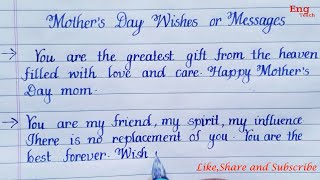 Mother's Day Wishes or Messages
Eng
Teach
→ You are the greatest gift from the heaven
filled with love and care. Happy Mother's
Day mom.
→ You are my friend, my spirit, my influence
There is no replacement of you. You are the
best forever. Wish
Like,Share and Subscribe